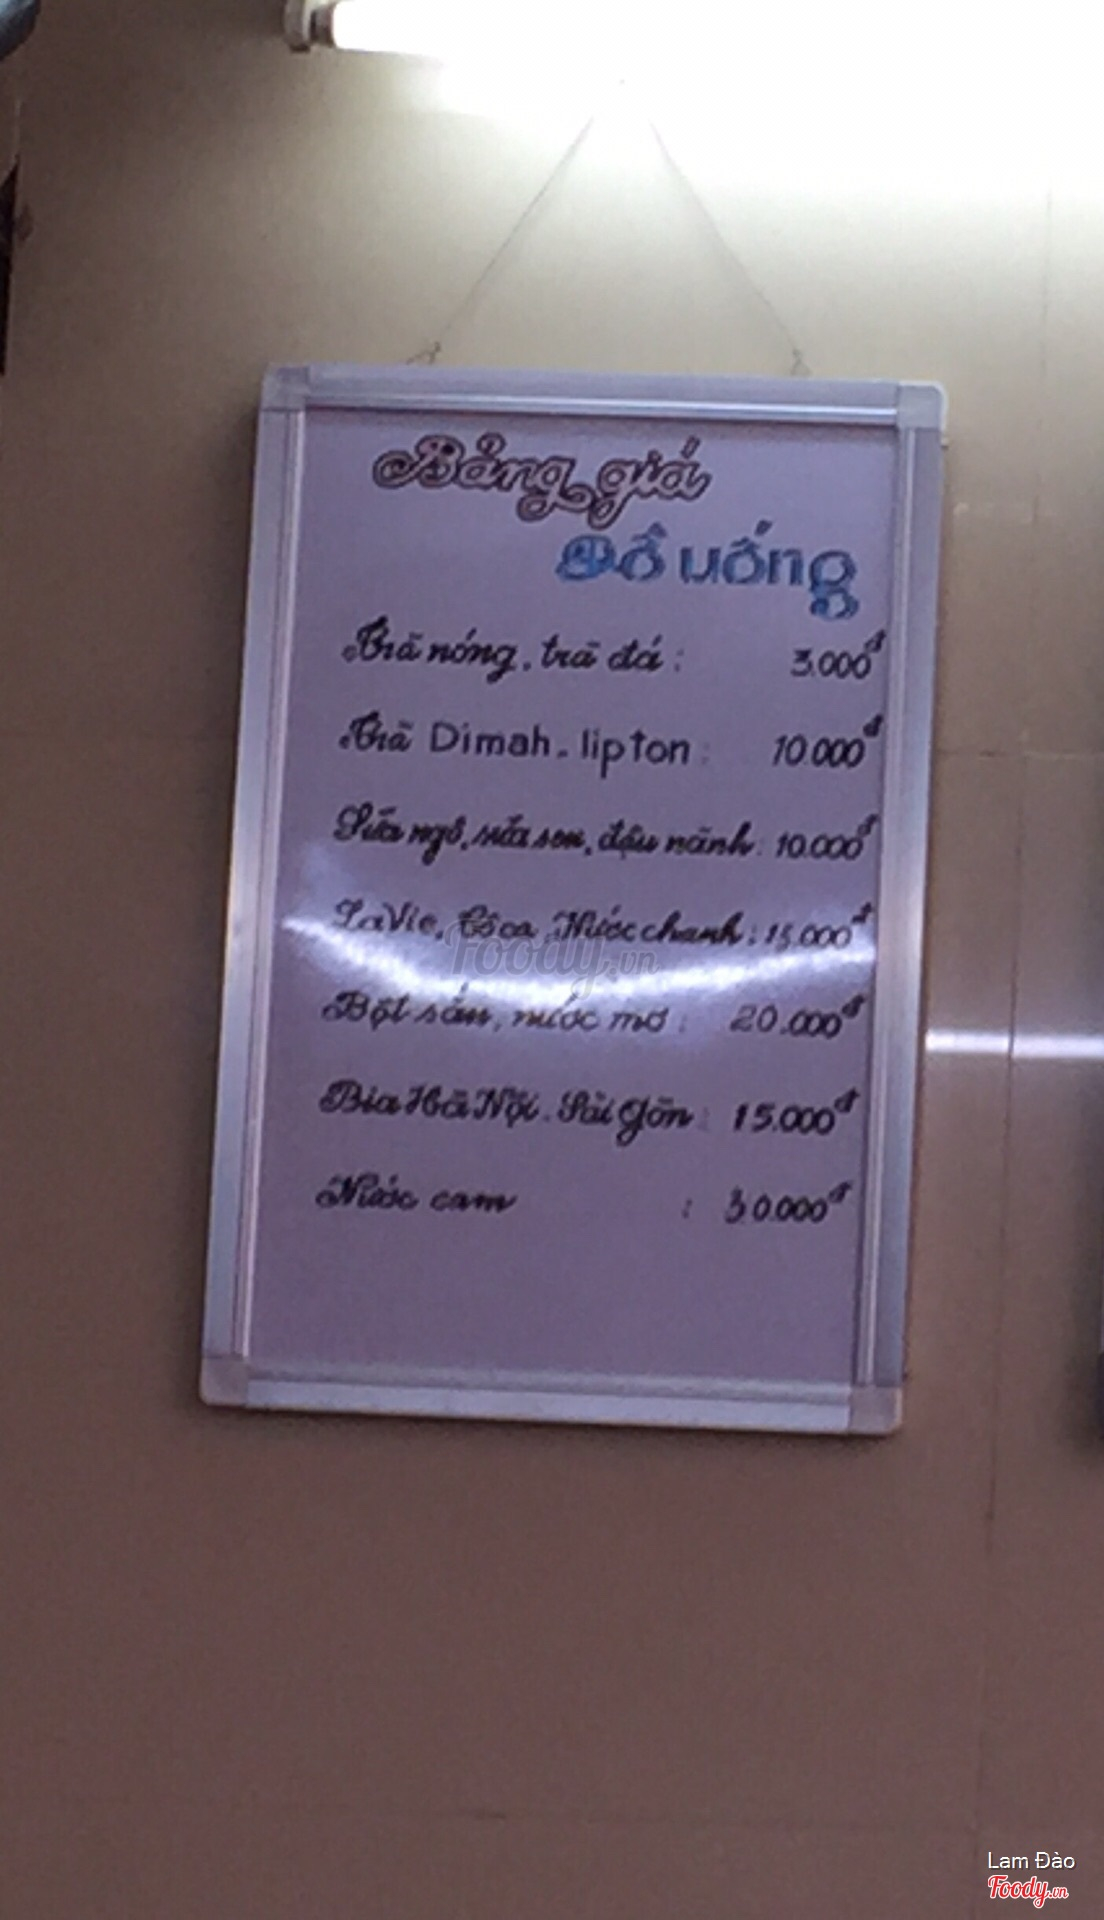 Bảng giá
Đồ uống
Trà nóng, trà đá : 3.000đ
Trà Dimah - lipton : 10.000đ
Sữa ngô, sữa sen, đậu nành : 10.000đ
LaVie, Côca, Nước chanh : 15.000đ
Foody.vn
Bột sắn, nước mơ : 20.000đ
Bia Hà Nội - Sài gòn : 15.000đ
Nước cam : 30.000đ
Lam Đào
Foody.vn